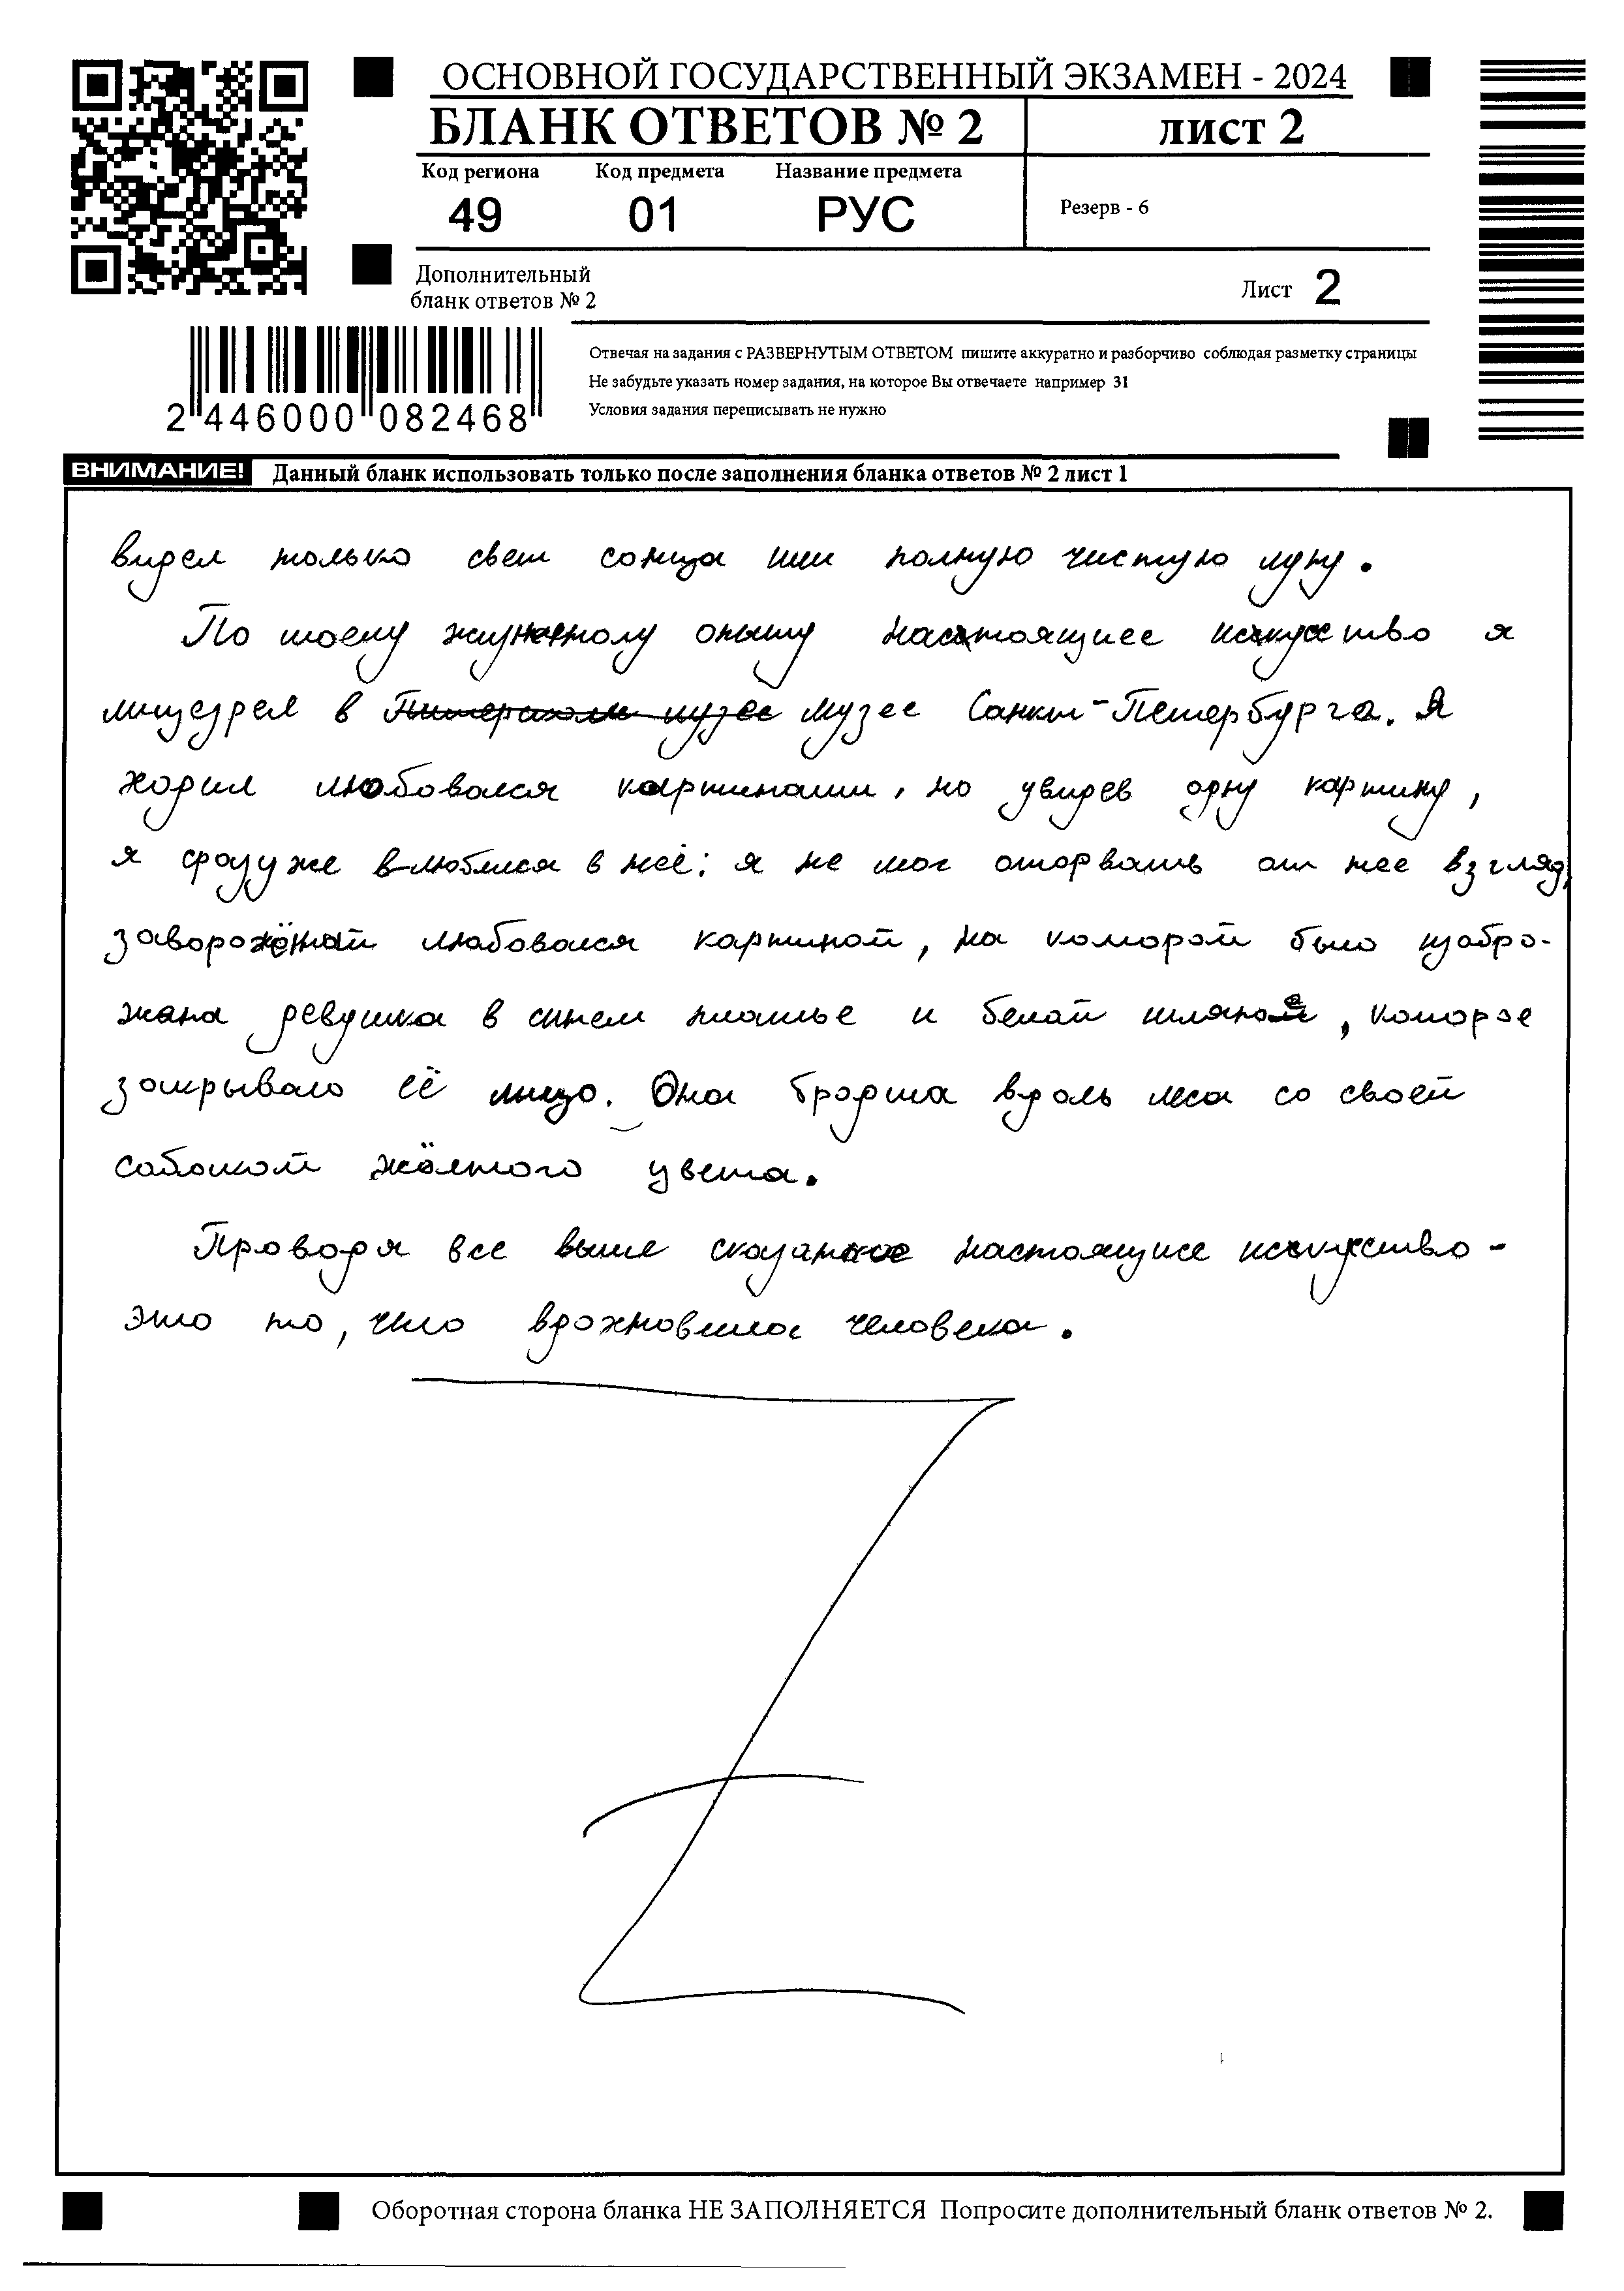 ОСНОВНОЙ ГОСУДАРСТВЕННЫЙ ЭКЗАМЕН - 2024
БЛАНК ОТВЕТОВ № 2 лист 2
Код региона Код предмета Название предмета
49 01 РУС Резерв - 6
Дополнительный
бланк ответов № 2 Лист 2
Отвечая на задания с РАЗВЕРНУТЫМ ОТВЕТОМ пишите аккуратно и разборчиво соблюдая разметку страницы
Не забудьте указать номер задания, на которое Вы отвечаете например 31
Условия задания переписывать не нужно
2 446000 082468
ВНИМАНИЕ! Данный бланк использовать только после заполнения бланка ответов № 2 лист 1
видел только свет сонца или полную чистую луну.
По моему опыту настоящиее искусство я
лицезрел в музее Санкт-Петербурга. Я
ходил любовался картинами, но увидев одну картину,
я сразу же влюбился в неё: я не мог оторвать от нее взгляд,
заворожёный любовался картиной, на которой было изобра-
жана девушка в синем платье и белой шляпе, которое
закрывало её лицо. Она бродила вдоль леса со своей
собакой жёлтого цвета.
Проводя все выше сказаное настоящиее искусство -
это то, что вдохновило человека.
Оборотная сторона бланка НЕ ЗАПОЛНЯЕТСЯ Попросите дополнительный бланк ответов № 2.